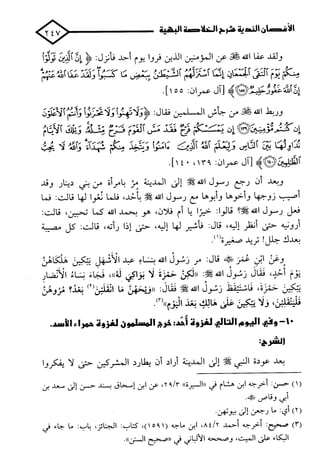 الأغصان الندية شرح الخلاصة البهية
٢٤٧
ولقد عفا الله عن المؤمنين الذين فروا يوم أحد فأنزل: ﴿ إِنَّ الَّذِينَ تَوَلَّوْا
مِنكُمْ يَوْمَ الْتَقَى الْجَمْعَانِ إِنَّمَا اسْتَزَلَّهُمُ الشَّيْطَانُ بِبَعْضِ مَا كَسَبُوا وَلَقَدْ عَفَا اللَّهُ عَنْهُمْ
إِنَّ اللَّهَ غَفُورٌ حَلِيمٌ ﴾ [آل عمران: ١٥٥].
وربط الله على جأش المسلمين فقال: ﴿ وَلَا تَهِنُوا وَلَا تَحْزَنُوا وَأَنتُمُ الْأَعْلَوْنَ
إِن كُنتُم مُّؤْمِنِينَ (١٣٩) إِن يَمْسَسْكُمْ قَرْحٌ فَقَدْ مَسَّ الْقَوْمَ قَرْحٌ مِّثْلُهُ وَتِلْكَ الْأَيَّامُ
نُدَاوِلُهَا بَيْنَ النَّاسِ وَلِيَعْلَمَ اللَّهُ الَّذِينَ آمَنُوا وَيَتَّخِذَ مِنكُمْ شُهَدَاءَ وَاللَّهُ لَا يُحِبُّ
الظَّالِمِينَ ﴾ [آل عمران: ١٣٩، ١٤٠].
وبعد أن رجع رسول الله ﷺ إلى المدينة مرَّ بامرأة من بني دينار وقد
أصيب زوجها وأخوها وأبوها مع رسول الله ﷺ بأُحد، فلما نُعوا لها قالت: فما
فعل رسول الله ﷺ؟ قالوا: خيرًا يا أم فلان، هو بحمد الله كما تحبين، قالت:
أرونيه حتى أنظر إليه، قال: فأشير لها إليه، حتى إذا رأته، قالت: كل مصيبة
بعدك جلل! تريد صغيرة(١).
وعَنْ ابْنِ عُمَرَ ﵁ قَالَ: مر رَسُولُ اللهِ ﷺ بنساءِ عبد الأَشْهَلِ يَبْكِينَ هَلْكَاهُنَّ
يَوْمَ أُحدٍ، فَقَالَ رَسُولُ اللهِ ﷺ: «لكِنَّ حَمْزَةَ لَا بَوَاكِيَ لَهُ»، فجَاءَ نِسَاءُ الأنصَارِ
يَبْكِينَ حَمْزَةَ، فَاسْتَيْقَظَ رَسُولُ اللهِ ﷺ فَقَالَ: «وَيْحَهُنَّ مَا انْقَلَبْنَ(٢) بَعْدُ؟ مُرُوهُنَّ
فَليَنْقَلِبْنَ، وَلَا يَبْكِينَ عَلَى هَالِكٍ بَعْدَ الْيَوْمِ»(٣).
١٠- وفي اليوم التالي لغزوة أُحُد: خرج المسلمون لغزوة حمراء الأسد.
الشرح:
بعد عودة النبي ﷺ إلى المدينة أراد أن يطارد المشركين حتى لا يفكروا
(١) حسن: أخرجه ابن هشام في «السيرة» ٢٩/٣، عن ابن إسحاق بسند حسن إلى سعد بن
أبي وقاص ﵁.
(٢) أي: ما رجعن إلى بيوتهن.
(٣) صحيح: أخرجه أحمد ٨٤/٢، ابن ماجه (١٥٩١)، كتاب: الجنائز، باب: ما جاء في
البكاء على الميت، وصححه الألباني في «صحيح السنن».